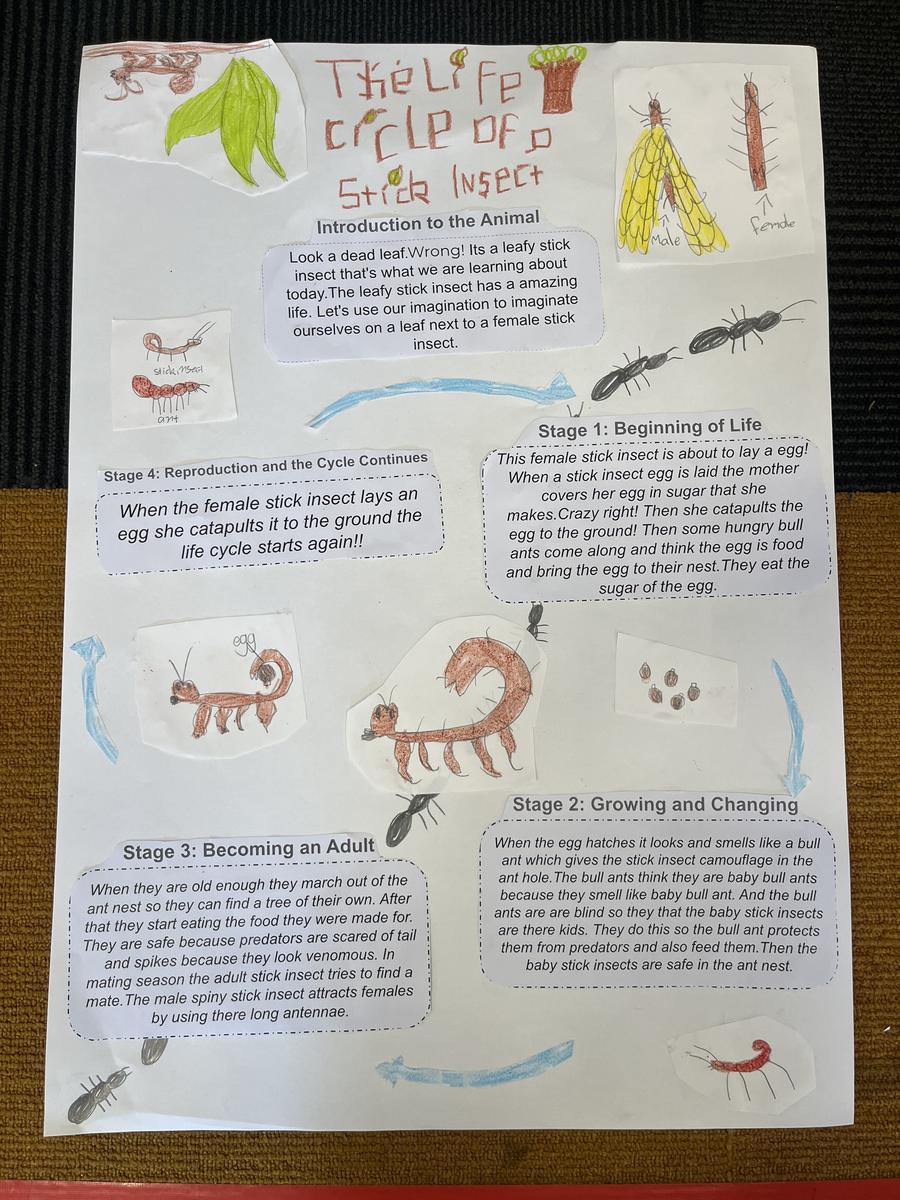 The Life
circle of a
Stick Insect
Male
female
Introduction to the Animal
Look a dead leaf.Wrong! Its a leafy stick
insect that's what we are learning about
today.The leafy stick insect has a amazing
life. Let's use our imagination to imaginate
ourselves on a leaf next to a female stick
insect.
stick insect
ant
Stage 1: Beginning of Life
This female stick insect is about to lay a egg!
When a stick insect egg is laid the mother
covers her egg in sugar that she
makes.Crazy right! Then she catapults the
egg to the ground! Then some hungry bull
ants come along and think the egg is food
and bring the egg to their nest.They eat the
sugar of the egg.
Stage 4: Reproduction and the Cycle Continues
When the female stick insect lays an
egg she catapults it to the ground the
life cycle starts again!!
egg
Stage 2: Growing and Changing
When the egg hatches it looks and smells like a bull
ant which gives the stick insect camouflage in the
ant hole.The bull ants think they are baby bull ants
because they smell like baby bull ant. And the bull
ants are are blind so they that the baby stick insects
are there kids. They do this so the bull ant protects
them from predators and also feed them.Then the
baby stick insects are safe in the ant nest.
Stage 3: Becoming an Adult
When they are old enough they march out of the
ant nest so they can find a tree of their own. After
that they start eating the food they were made for.
They are safe because predators are scared of tail
and spikes because they look venomous. In
mating season the adult stick insect tries to find a
mate.The male spiny stick insect attracts females
by using there long antennae.